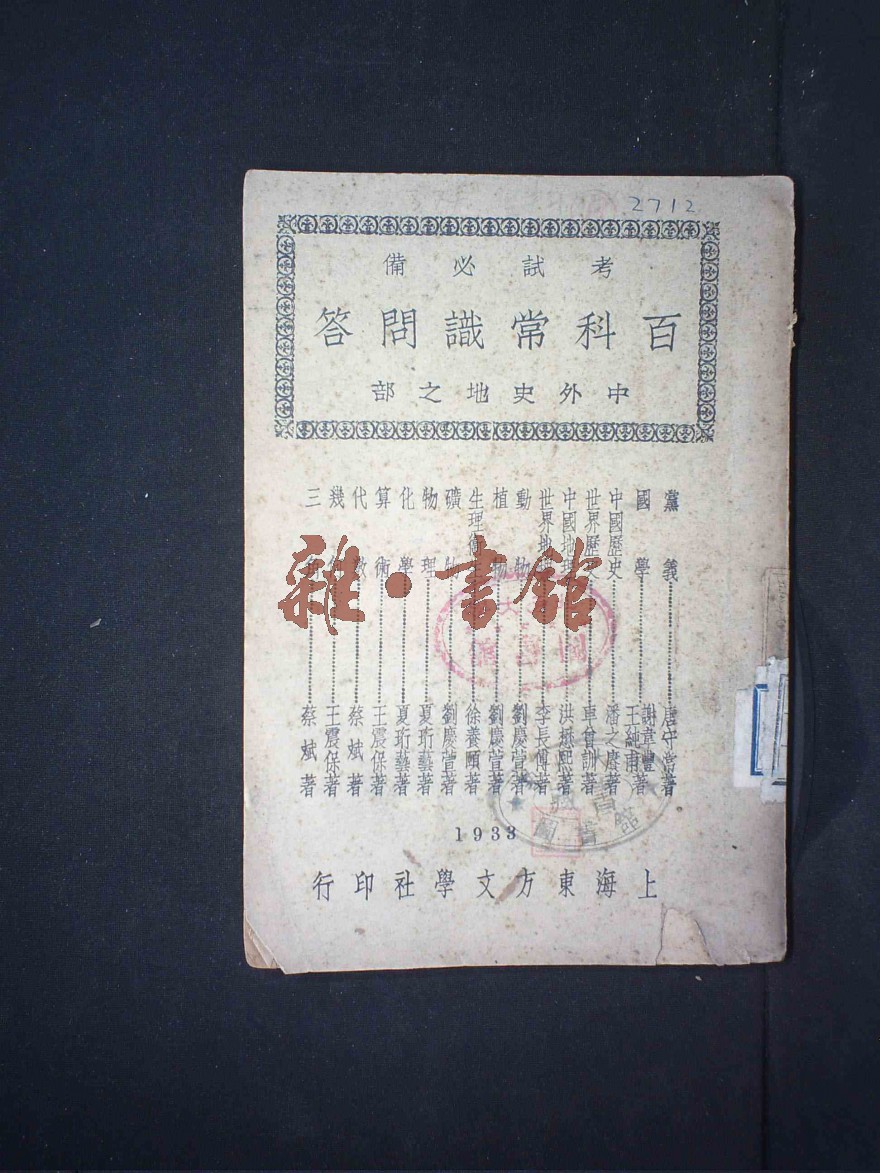 2712
考試必備
百科常識問答
中外史地之部
黨義 唐守常著
國學 謝韋豐 王純甫 著
中國歷史 潘之賡著
世界歷史 車曾訓著
中國地理 洪懋熙著
世界地 李長傅著
動物 劉慶萱著
植物 劉慶萱著
生理衛 徐養頤著
礦物 劉慶萱著
物理 夏珩藝著
化學 夏珩藝著
算術 王震保著
代數 蔡斌著
幾 王震保著
三 蔡斌著
1933
上海東方文學社印行
雜·書館